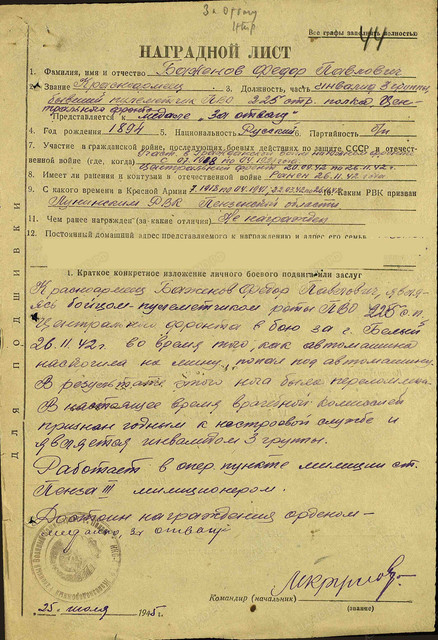 За Отвагу
Все графы заполнять полностью
44
НАГРАДНОЙ ЛИСТ
1. Фамилия, имя и отчество Баженов Федор Павлович
2. Звание Красноармеец 3. Должность, часть инвалид 3 группы,
бывший пулеметчик ПВО 225 стр. полка Цен-
трального фронта
Представляется к медале "За отвагу"
4. Год рождения 1894 5. Национальность Русский 6. Партийность б/п
7. Участие в гражданской войне, последующих боевых действиях по защите СССР и отечест-
венной войне (где, когда)
с 07.1918 по 04.1921
8. Имеет ли ранения и контузии в отечественной войне Ранен 26.11.42 года
9. С какого времени в Красной Армии Каким РВК призван
Лунинским РВК Пензенской области
11. Чем ранее награжден (за какие отличия) Не награжден
12. Постоянный домашний адрес представляемого к награждению и адрес его семьи
1. Краткое конкретное изложение личного боевого подвига или заслуг
Красноармеец Баженов Федор Павлович, явля-
ясь бойцом-пулеметчиком роты ПВО 225 с.п.
Центрального фронта в бою за г. Белый
26.11.42г. во время того, как автомашина
наскочила на мину, попал под автомашину.
В результате этого нога была переломлена.
В настоящее время врачебной комиссией
признан годным к нестроевой службе и
является инвалидом 3 группы.
Работает в опер. пункте милиции ст.
Пенза III милиционером.
Достоин награждения орденом-
медалью, за отвагу
Командир (начальник)
(звание)
25 июля 1945г.
ДЛЯ ПОДШИВКИ